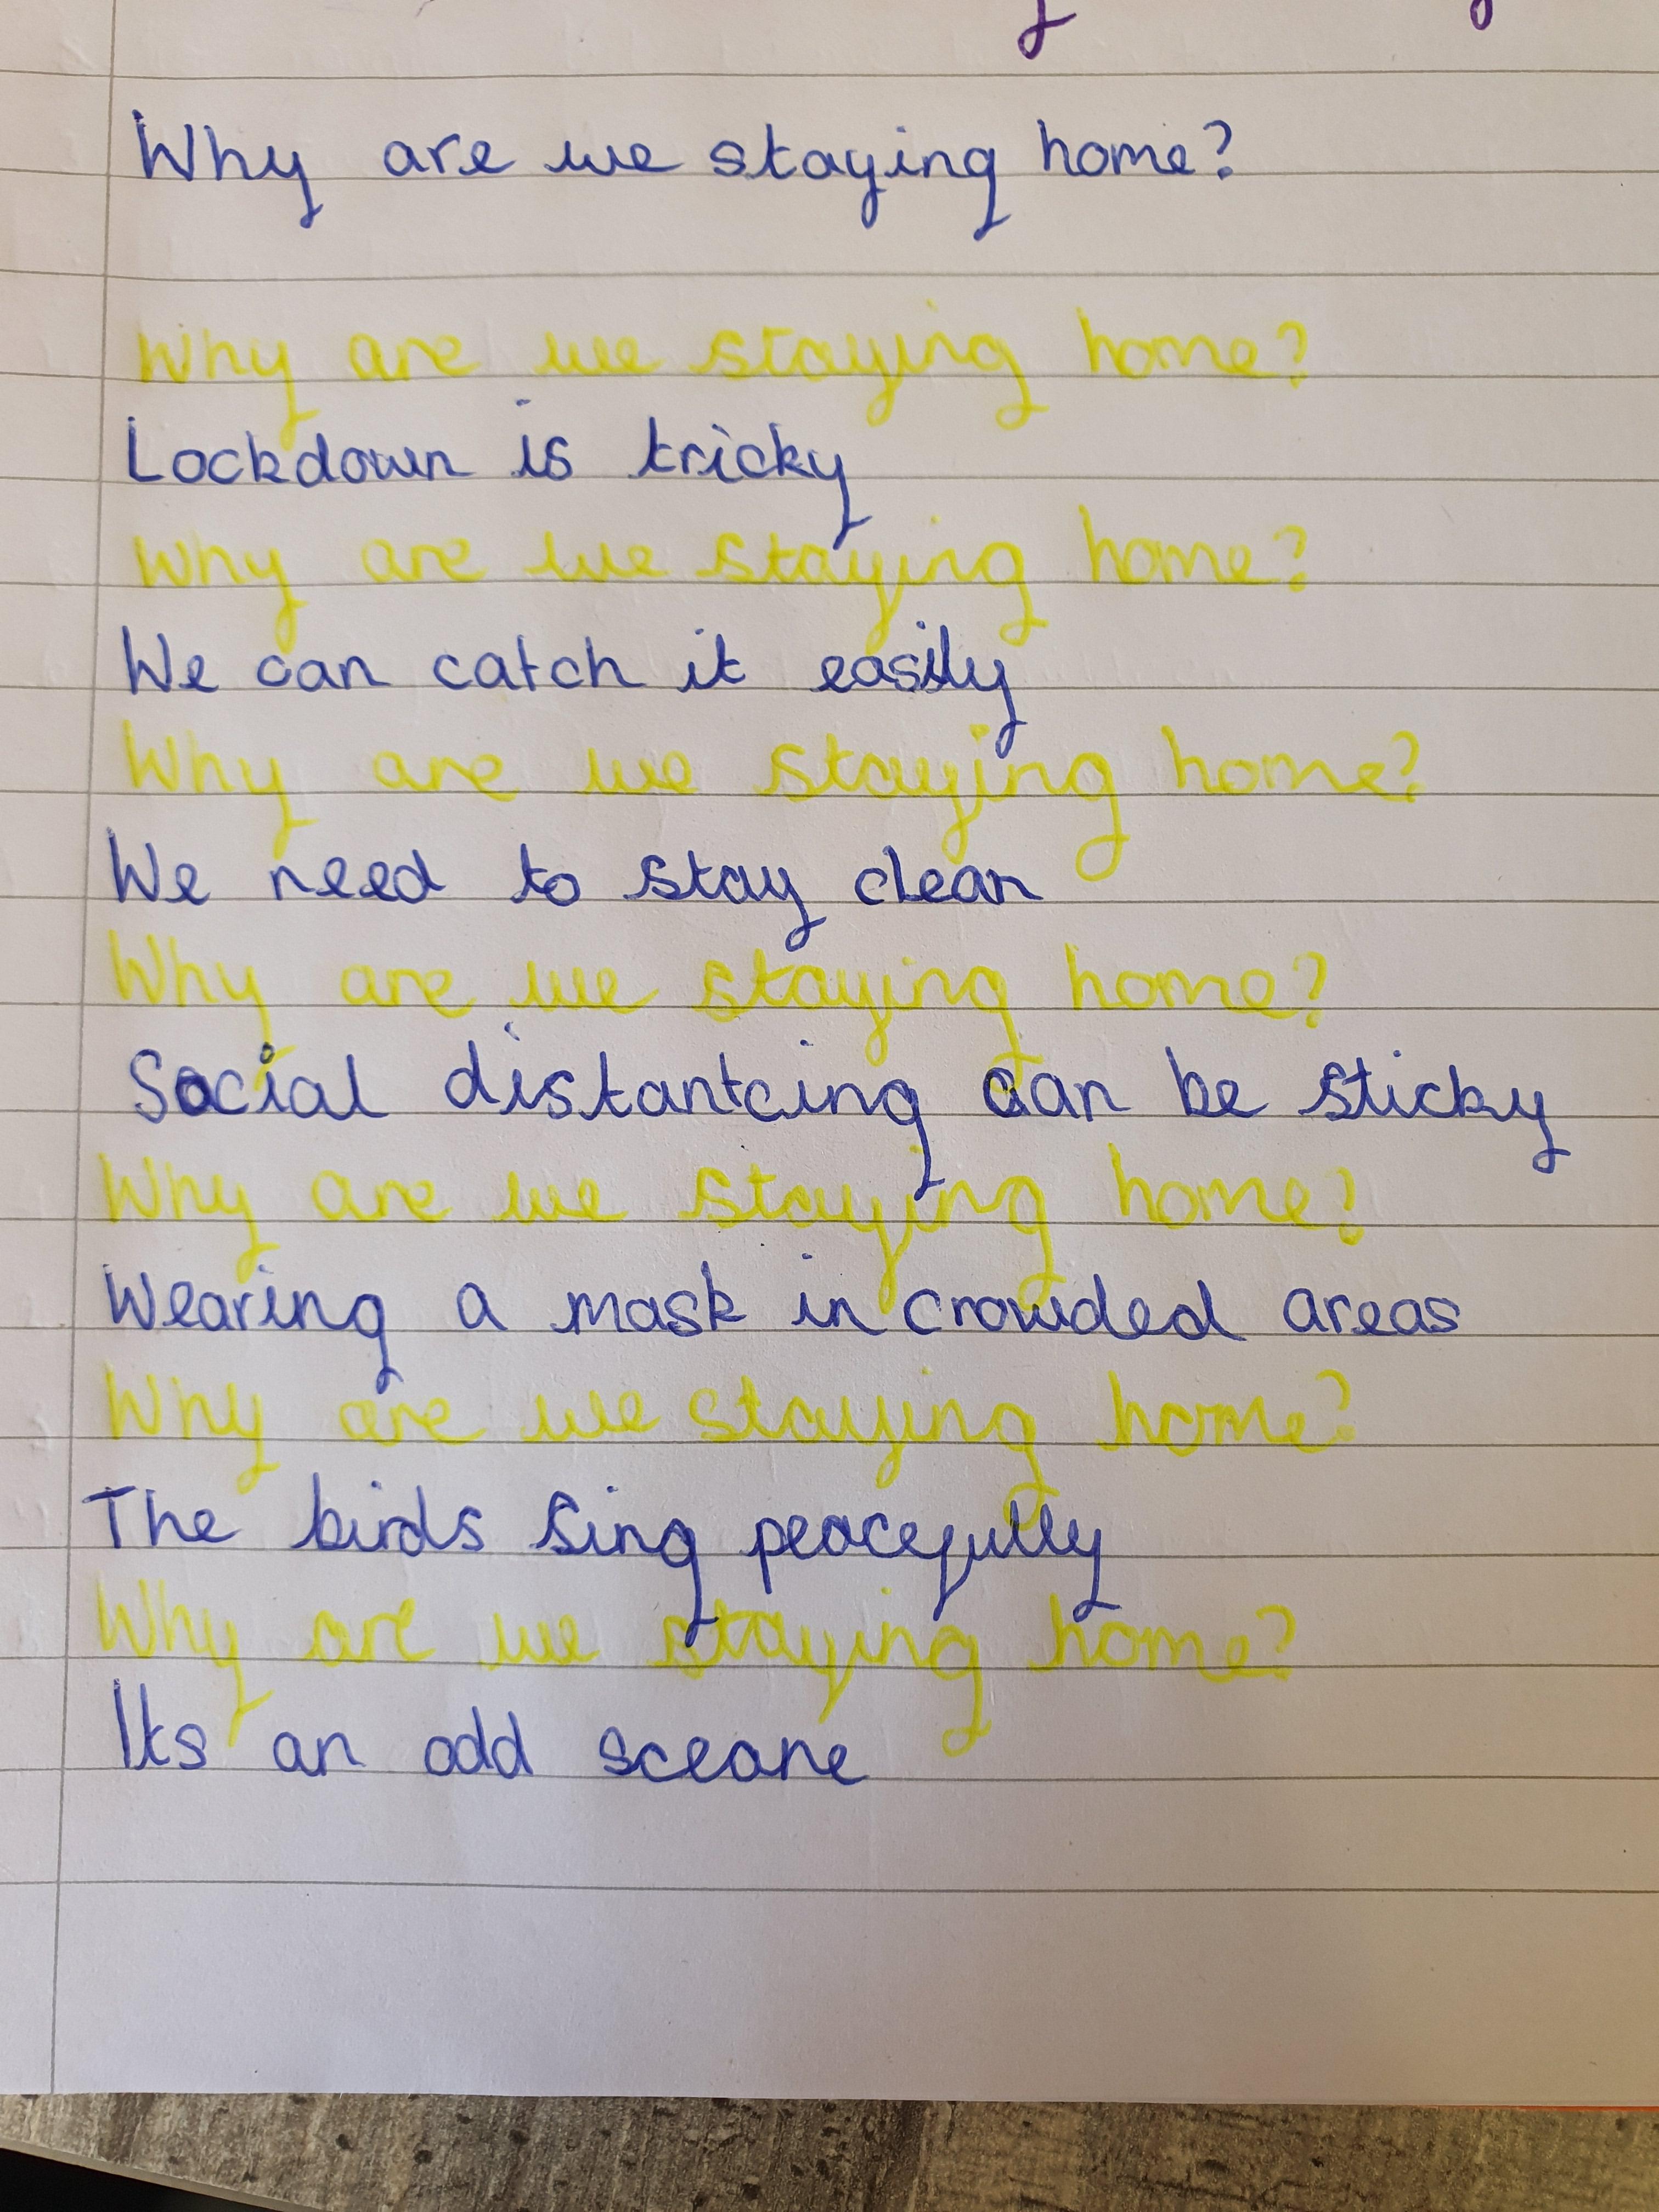 Why are we staying home?
Why are we staying home?
Lockdown is tricky
Why are we staying home?
We can catch it easily
Why are we staying home?
We need to stay clean
Why are we staying home?
Social distantcing can be sticky
Why are we staying home?
Wearing a mask in crowded areas
Why are we staying home?
The birds sing peacefully
Why are we staying home?
Its an odd sceane